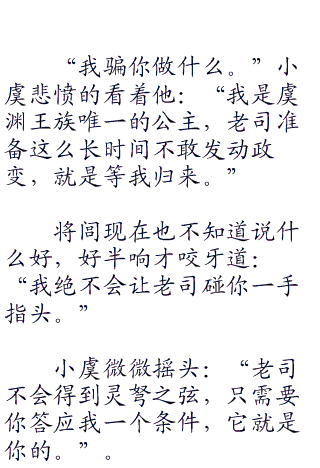 “我骗你做什么。”小
虞悲愤的看着他：“我是虞
渊王族唯一的公主，老司准
备这么长时间不敢发动政
变，就是等我归来。”
将闾现在也不知道说什
么好，好半响才咬牙道：
“我绝不会让老司碰你一手
指头。”
小虞微微摇头：“老司
不会得到灵弩之弦，只需要
你答应我一个条件，它就是
你的。”。